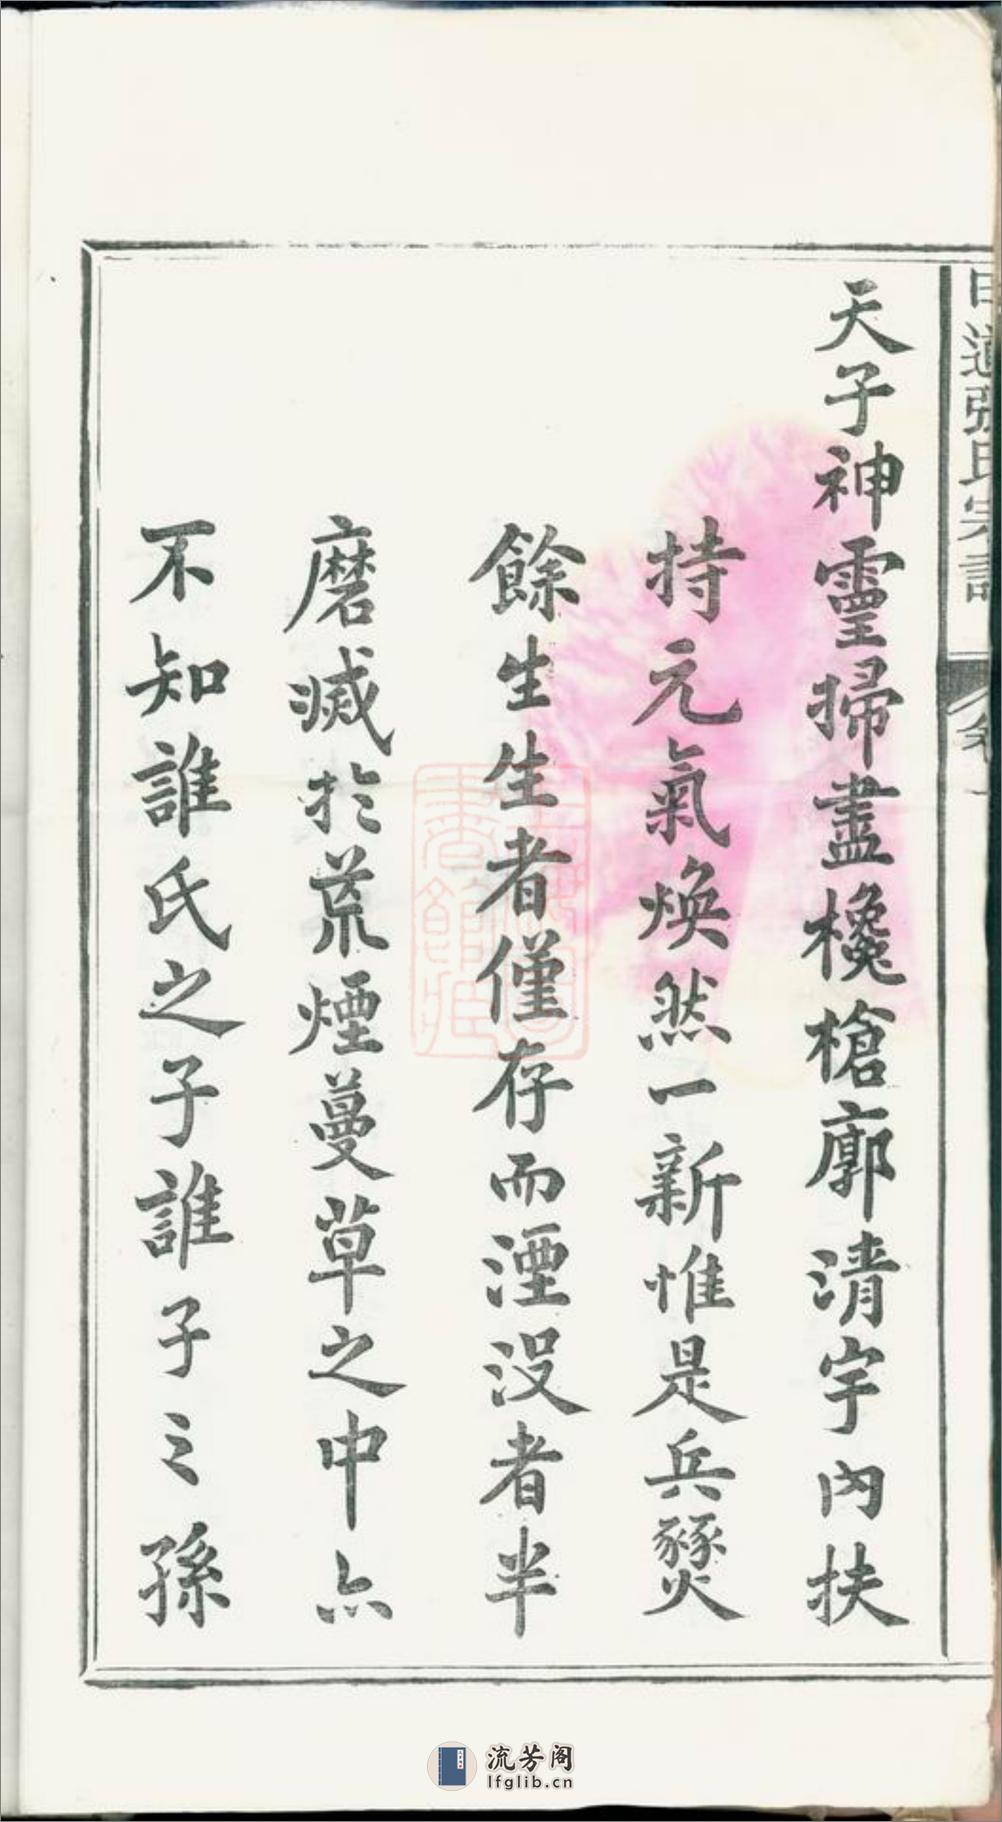 天子神靈掃盡欃槍廓清宇內扶
持元氣煥然一新惟是兵燹
餘生生者僅存而湮没者半
磨滅於荒煙蔓草之中亦
不知誰氏之子誰子之孫
張氏宗譜
流芳阁
lfglib.cn